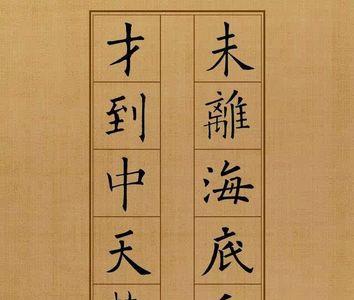 未離海底
才到中天